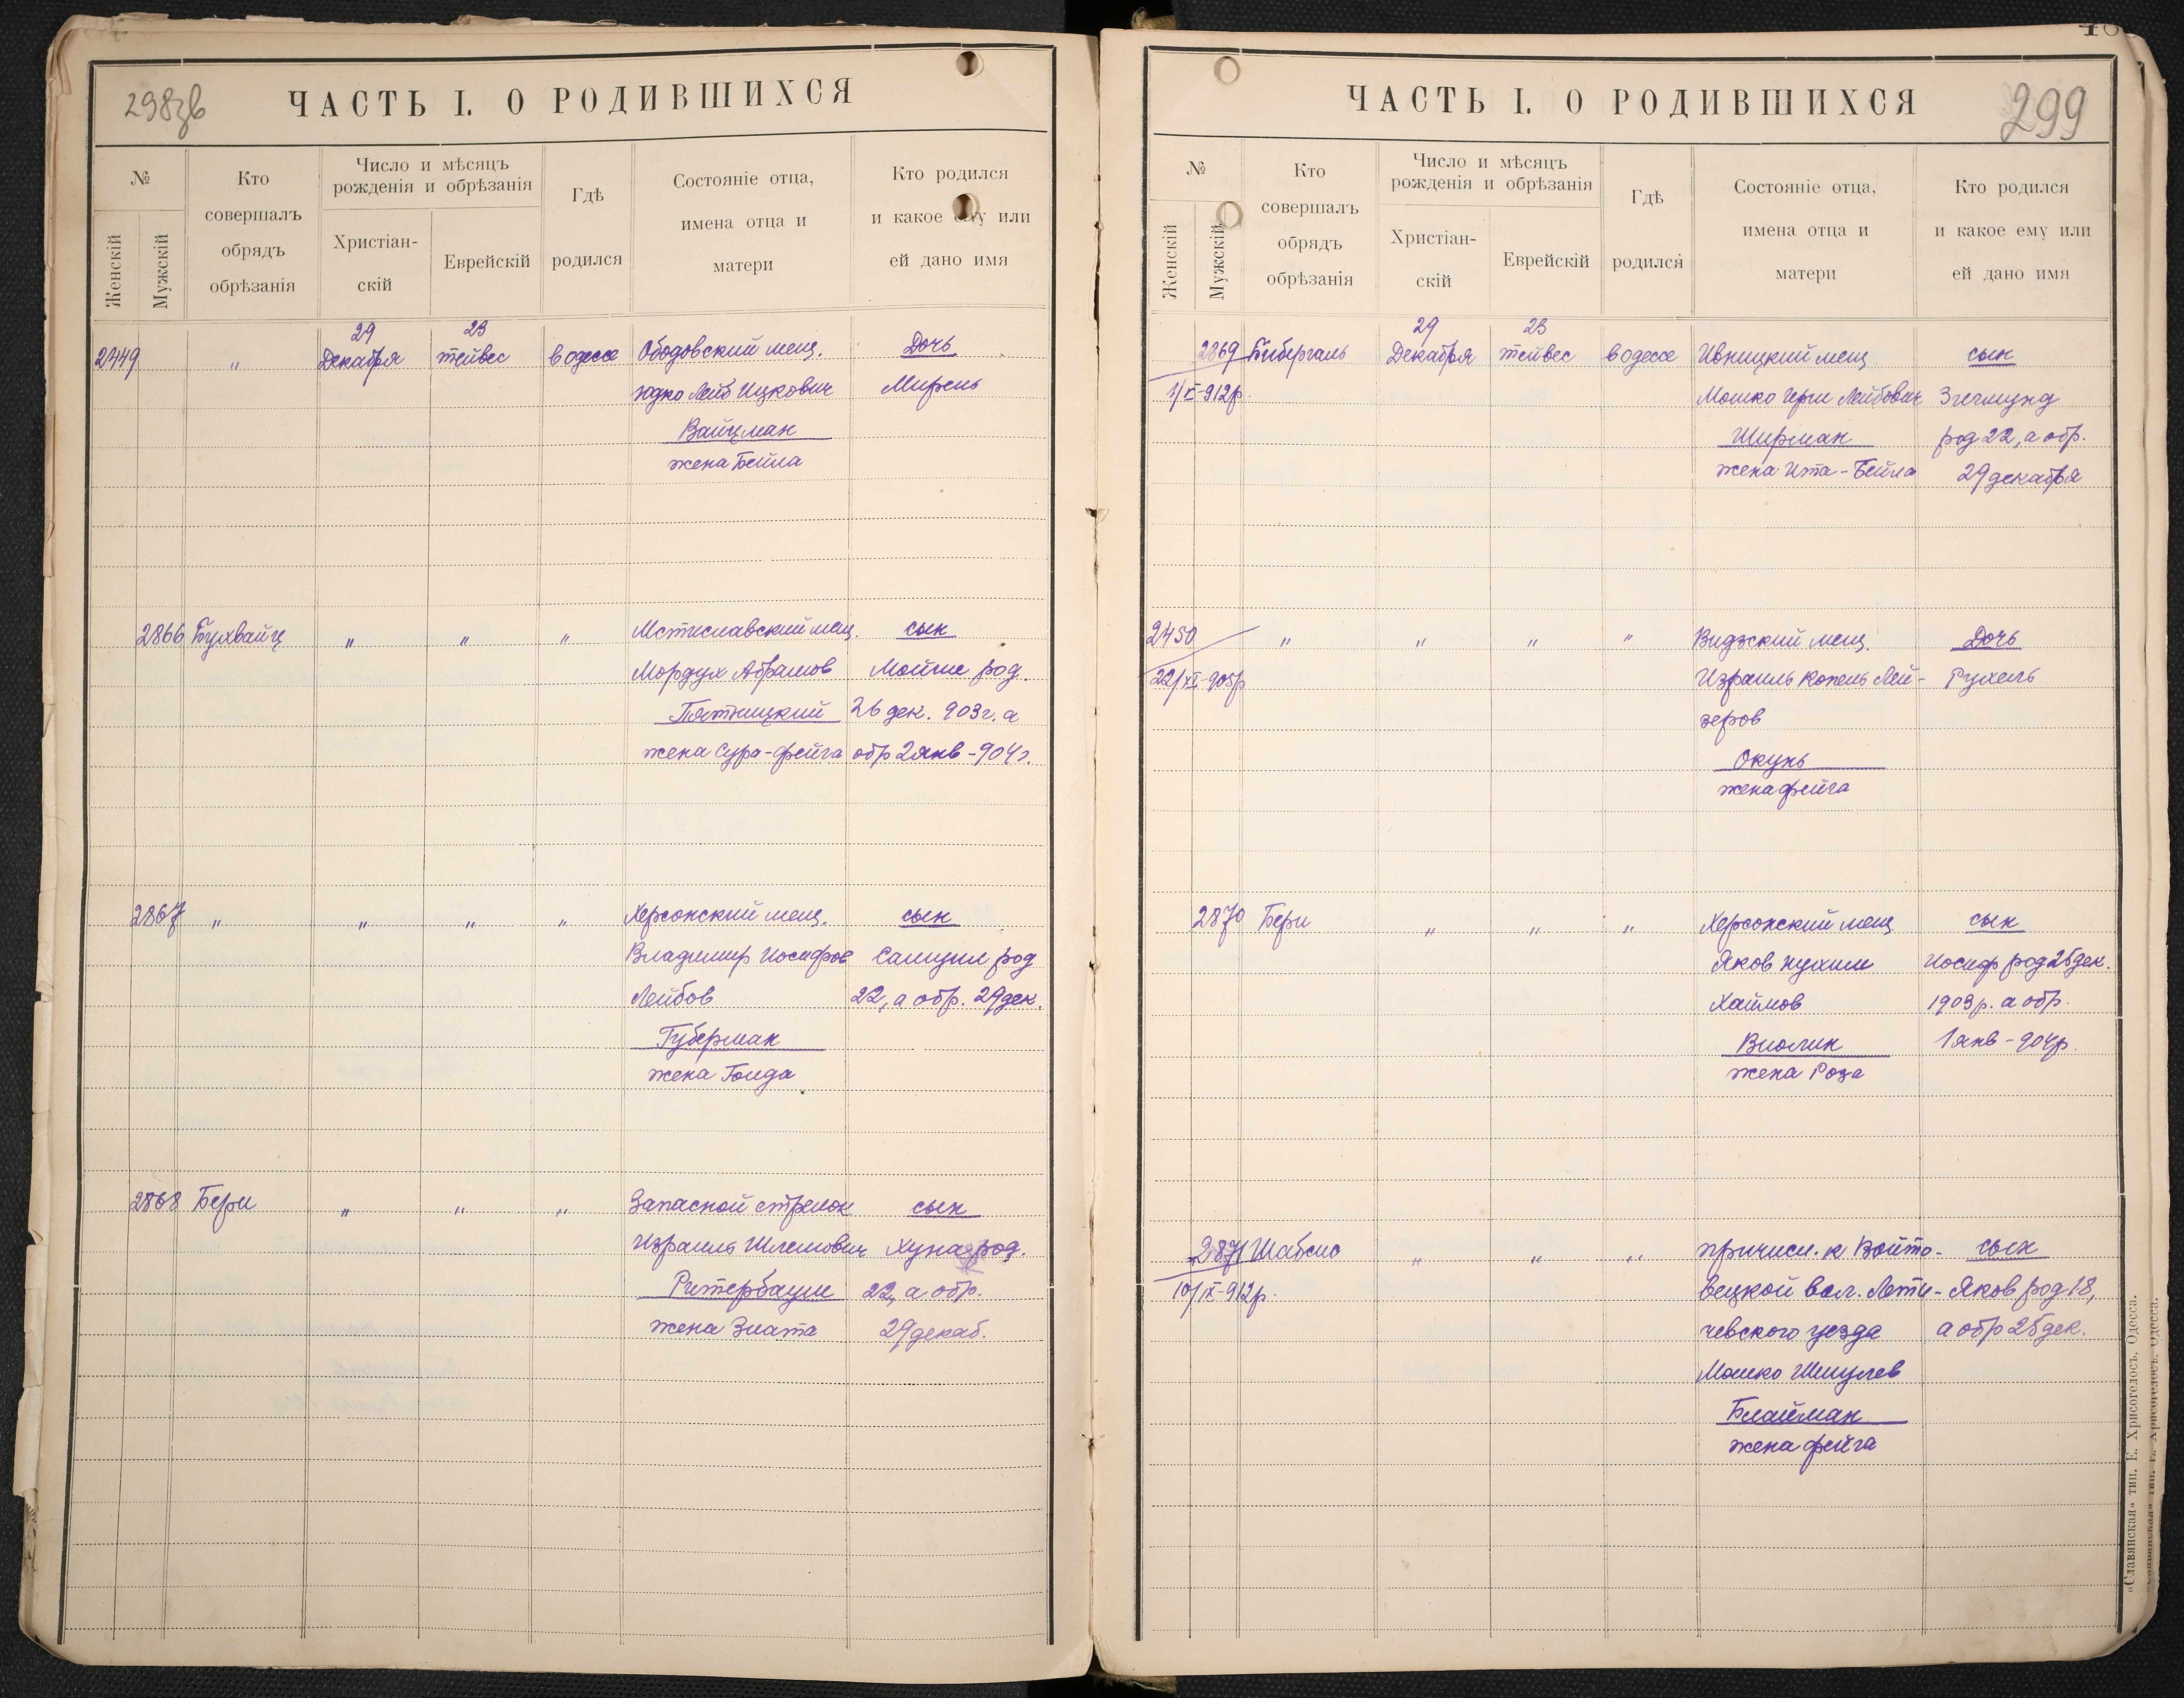 298зв
ЧАСТЬ I. О РОДИВШИХСЯ
№
Женскій
Мужскій
Кто
совершалъ
обрядъ
обрѣзанія
Число и мѣсяцъ
рожденія и обрѣзанія
Христіан-
скій
Еврейскій
Гдѣ
родился
Состояніе отца,
имена отца и
матери
Кто родился
и какое ему или
ей дано имя
29 23
2449 " Декабря тейвес в одессе Ободовский мещ. Дочь
Юдко Лейб Ицкович Мирель
Вайцман
жена Бейла
2866 Бухвайц " " " Мстиславский мещ. сын
Мордух Абрамов Мойше род.
Пятницкий 26 дек. 903г. а
жена Сура-фейга обр 2 янв - 904г.
2867 " " " " Херсонский мещ. сын
Владимир Иосифов Самуил род
Лейбов 22, а обр. 29 дек.
Губерман
жена Голда
2868 Бери " " " Запасной стрелок сын
Израиль Шлемович Хуна род.
Ритербаум 22, а обр.
жена Злата 29 декаб.
ЧАСТЬ I. О РОДИВШИХСЯ
299
№
Женскій
Мужскій
Кто
совершалъ
обрядъ
обрѣзанія
Число и мѣсяцъ
рожденія и обрѣзанія
Христіан-
скій
Еврейскій
Гдѣ
родился
Состояніе отца,
имена отца и
матери
Кто родился
и какое ему или
ей дано имя
29 23
2869 Бибергаль Декабря тейвес в одессе Ивницкий мещ сын
912р. Мошко Герш Лейбович Зигмунд
Ширман род 22, а обр.
жена Ита-Бейла 29 декабря
2450 " " " " Видзский мещ. Дочь
22/XI-905р Израиль Копель Лей- Рухель
зеров
Окунь
жена фейга
2870 Бери " " " Херсонский мещ сын
Яков Нухим Иосиф род 25 дек.
Хаймов 1903р. а обр.
Виолин 1 янв - 904р.
жена Роза
2871 Шабсис " " " причисл. к Войто- сын
10/IX-912р. вецкой вол. Лети- Яков род 18,
чевского уезда а обр 25 дек.
Мошко Шмулев
Блайман
жена фейга
«Славянская» тип. Е. Хрисогелосъ. Одесса.